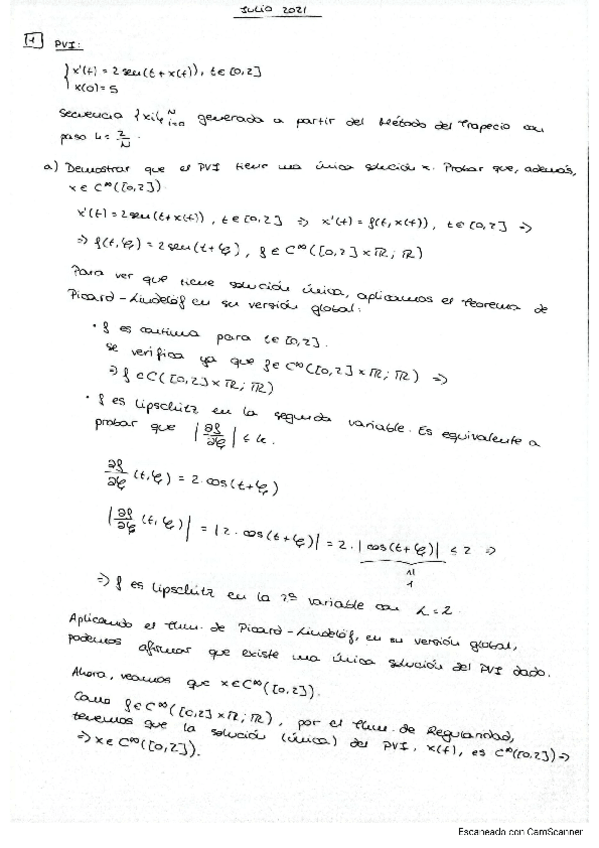 JULIO 2021
1 PVI:
{ x'(t) = 2 sen(t + x(t)), t ∈ [0,2]
x(0) = 5
Secuencia {xi}ᴺᵢ₌₀ generada a partir del Método del Trapecio con
paso h = 2/N.
a) Demostrar que el PVI tiene una única solución x. Probar que, además,
x ∈ C^∞([0,2]).
x'(t) = 2 sen(t + x(t)), t ∈ [0,2] ⇒ x'(t) = f(t, x(t)), t ∈ [0,2] ⇒
⇒ f(t,ξ) = 2 sen(t+ξ), f ∈ C^∞([0,2] × ℝ; ℝ)
Para ver que tiene solución única, aplicamos el Teorema de
Picard-Lindelöf en su versión global:
• f es continua para t ∈ [0,2].
se verifica ya que f ∈ C^∞([0,2] × ℝ; ℝ) ⇒
⇒ f ∈ C([0,2] × ℝ; ℝ)
• f es Lipschitz en la segunda variable. Es equivalente a
probar que |∂f/∂ξ| ≤ k.
∂f/∂ξ (t,ξ) = 2·cos(t+ξ)
|∂f/∂ξ (t,ξ)| = |2·cos(t+ξ)| = 2·|cos(t+ξ)| ≤ 2 ⇒
≤
1
⇒ f es Lipschitz en la 2ª variable con L = 2.
Aplicando el thm. de Picard-Lindelöf, en su versión global,
podemos afirmar que existe una única solución del PVI dado.
Ahora, veamos que x ∈ C^∞([0,2]).
Como f ∈ C^∞([0,2] × ℝ; ℝ), por el thm. de Regularidad,
tenemos que la solución (única) del PVI, x(t), es C^∞([0,2]) ⇒
⇒ x ∈ C^∞([0,2]).
Escaneado con CamScanner